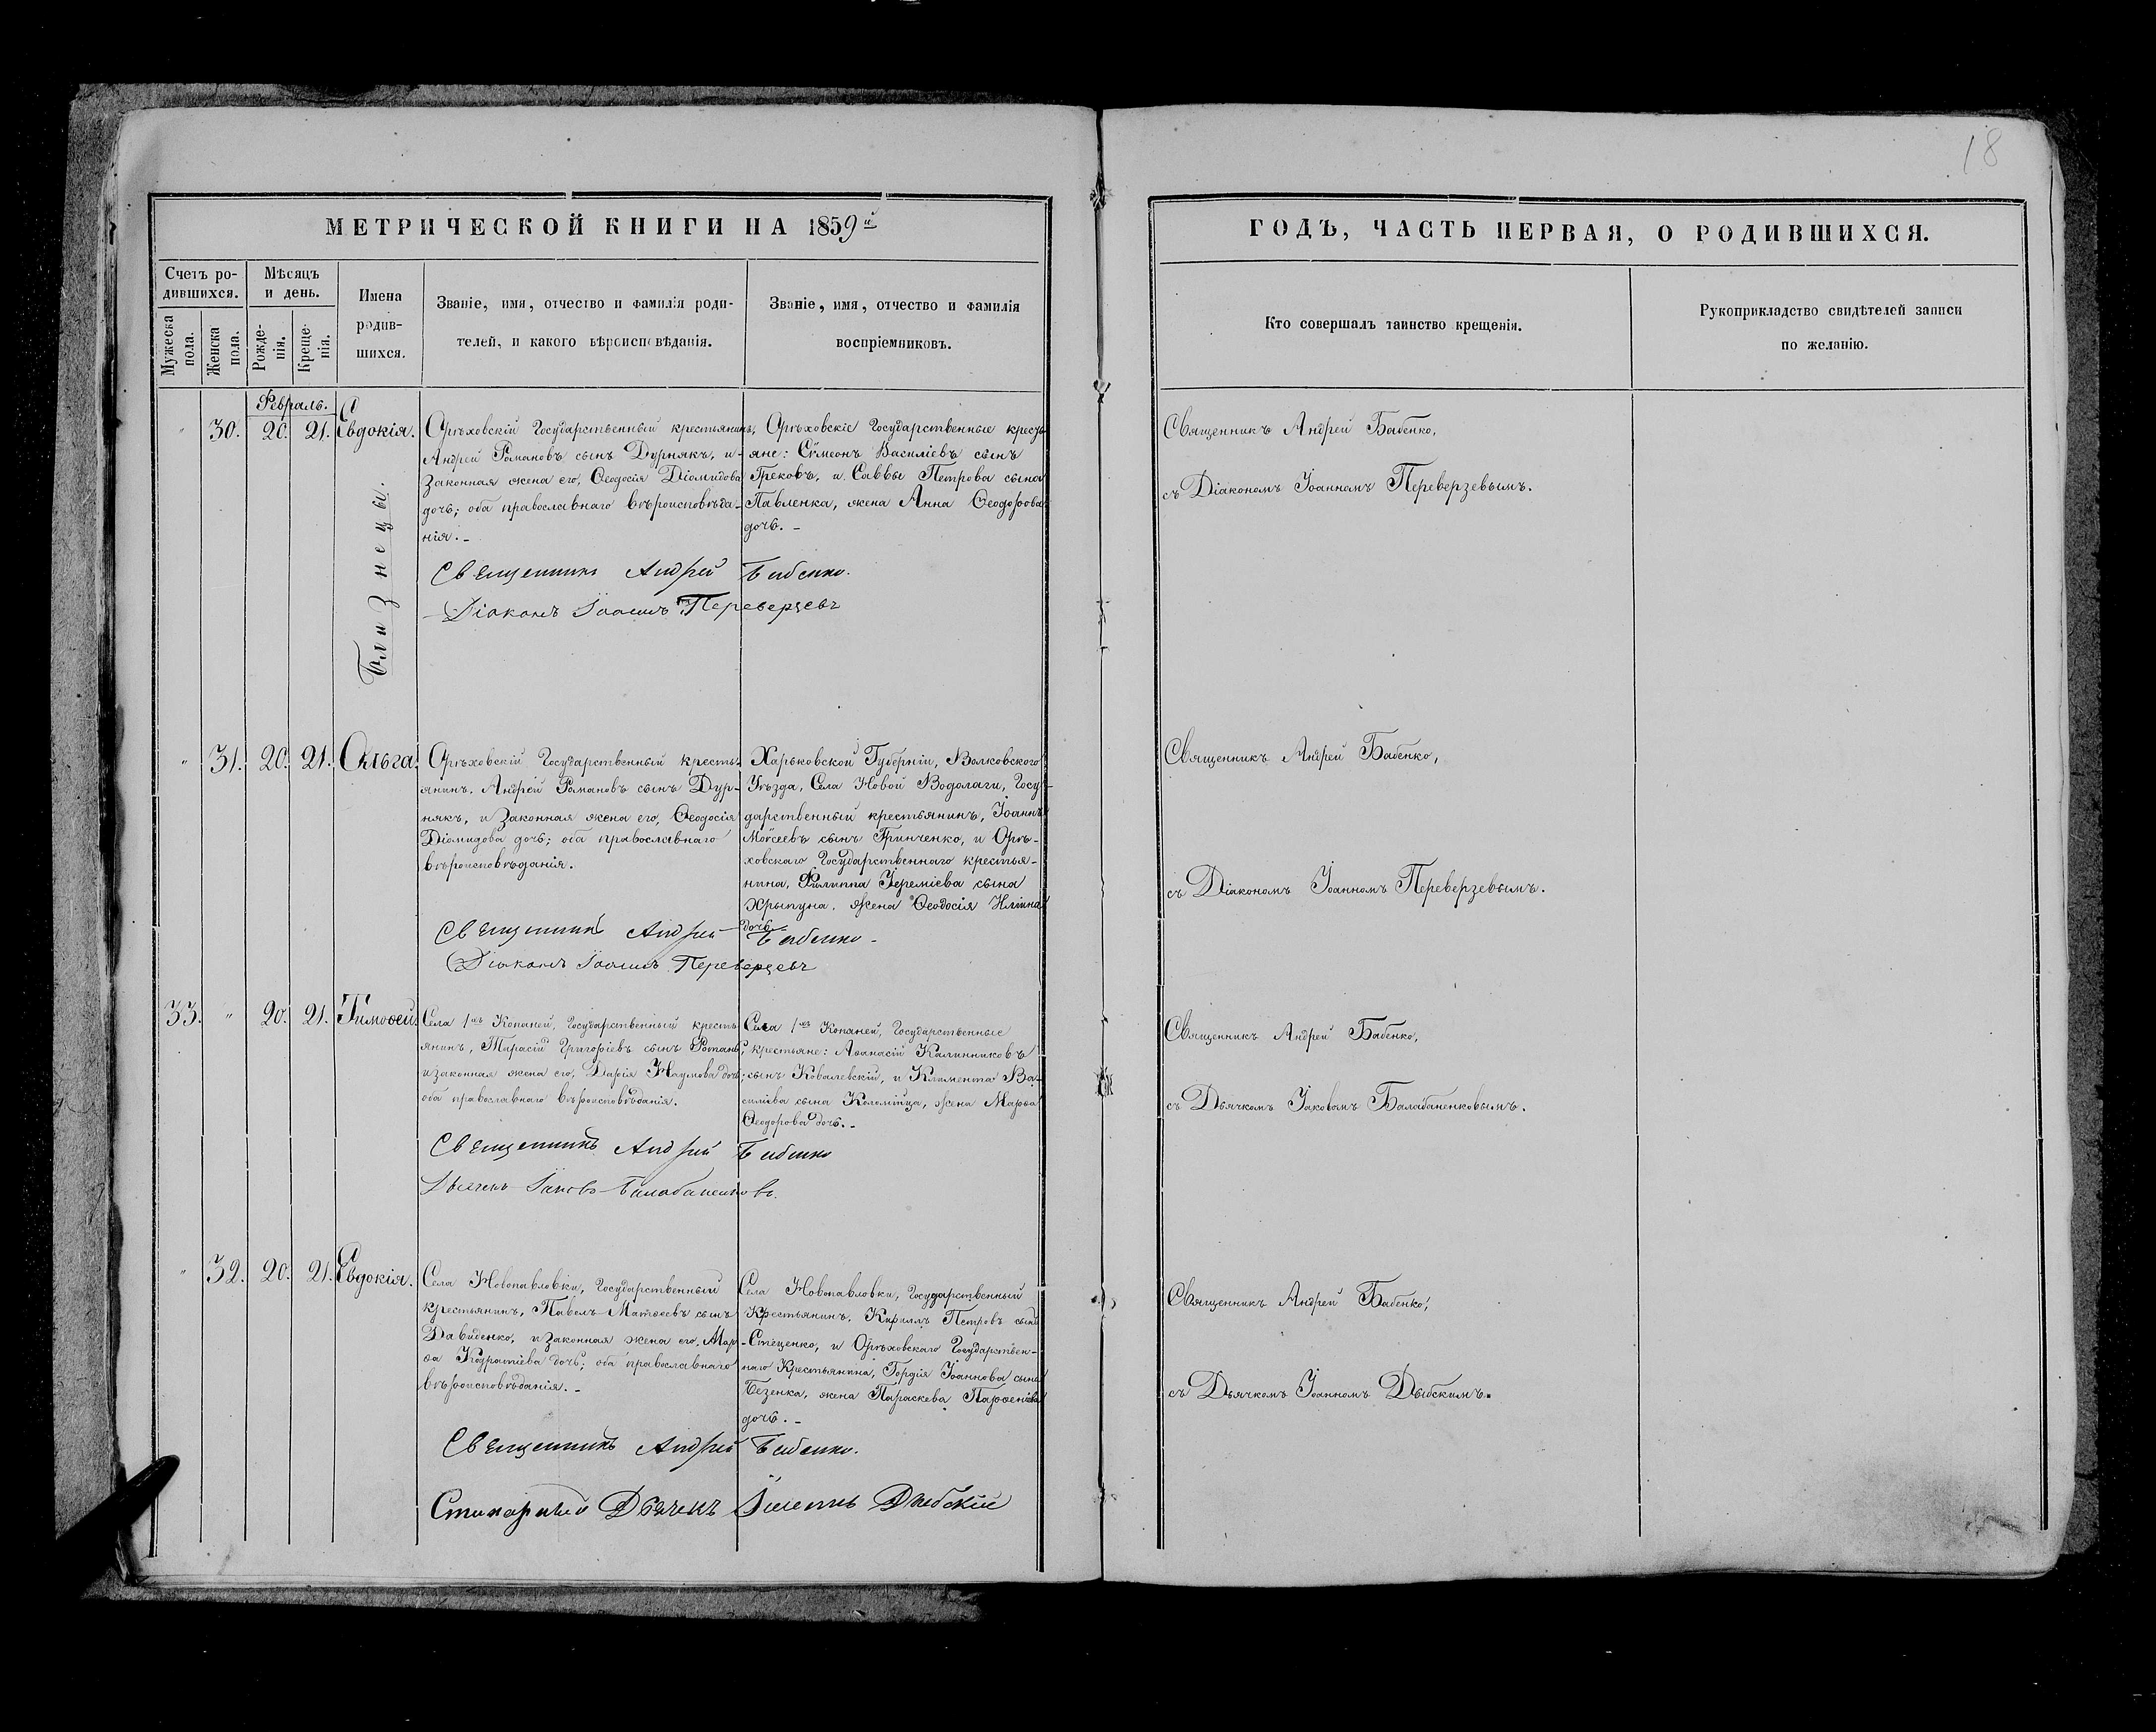 18
МЕТРИЧЕСКОЙ КНИГИ НА 1859й
ГОДЪ, ЧАСТЬ ПЕРВАЯ, О РОДИВШИХСЯ.
Счетъ ро-
дившихся.
Мужеска
пола.
Женска
пола.
Мѣсяцъ
и день.
Рожде-
нія.
Креще-
нія.
Имена
родив-
шихся.
Званіе, имя, отчество и фамилія роди-
телей, и какого вѣроисповѣданія.
Званіе, имя, отчество и фамилія
воспріемниковъ.
Кто совершалъ таинство крещенія.
Рукоприкладство свидѣтелей записи
по желанію.
Февраль.
" 30. 20. 21. Евдокія.
Близнецы.
Орѣховскій Государственный крестьянинъ,
Андрей Романовъ сынъ Дурнякъ, и
Законная жена его, Ѳеодосія Діомидова
дочь; оба православнаго вѣроисповѣда-
нія.-
Орѣховскіе Государственные кресть-
яне: Сѵмеонъ Василіевъ сынъ
Грековъ, и Саввы Петрова сына
Павленка, жена Анна Ѳеодорова
дочь.-
Священникъ Андрей Бабенко.
Діаконъ Іоаннъ Переверзевъ
Священникъ Андрей Бабенко,
съ Діакономъ Іоанномъ Переверзевымъ.
" 31. 20. 21. Ольга.
Орѣховскій Государственный кресть-
янинъ. Андрей Романовъ сынъ Дур-
някъ, и Законная жена его, Ѳеодосія
Діомидова дочь; оба православнаго
вѣроисповѣданія.
Харьковской Губерніи, Волковского
Уѣзда, Села Новой Водолаги, Госу-
дарственный крестьянинъ, Іоаннъ
Моѵсеевъ сынъ Гринченко, и Орѣ-
ховскаго Государственнаго крестья-
нина, Филиппа Іереміева сына
Хрыпуна, жена Ѳеодосія Иліина
дочь.
Священникъ Андрей Бабенко-
Діаконъ Іоаннъ Переверзевъ
Священникъ Андрей Бабенко,
съ Діакономъ Іоанномъ Переверзевымъ.
33. " 20. 21. Тимоѳей.
Села 1хъ Копаней, Государственный кресть-
янинъ, Тарасій Григоріевъ сынъ
и законная жена его, Дарія Наумова дочь;
оба православнаго вѣроисповѣданія.
Села 1хъ Копаней, Государственные
крестьяне: Аѳанасій Калинниковъ
сынъ Ковалевскій, и Климента Ва-
силіева сына Коломійца, жена Марѳа
Ѳеодорова дочь.-
Священникъ Андрей Бабенко
Дьячекъ Іаковъ Балабаненковъ.
Священникъ Андрей Бабенко,
съ Дьячкомъ Іаковомъ Балабаненковымъ.
" 32. 20. 21. Евдокія.
Села Новопавловки, Государственный
крестьянинъ, Павелъ Матѳеевъ сынъ
Давиденко, и Законная жена его, Мар-
ѳа Кодратіева дочь; оба православнаго
вѣроисповѣданія.-
Села Новопавловки, Государственный
Крестьянинъ, Кириллъ Петровъ сынъ
Стеценко, и Орѣховскаго Государствен-
наго Крестьянина, Гордія Іоаннова сына
Безенка, жена Параскева Парѳеніева
дочь.-
Священникъ Андрей Бабенко.
Стихарный Дьячекъ Іоаннъ Дыбскій
Священникъ Андрей Бабенко,
съ Дьячкомъ Іоанномъ Дыбскимъ.